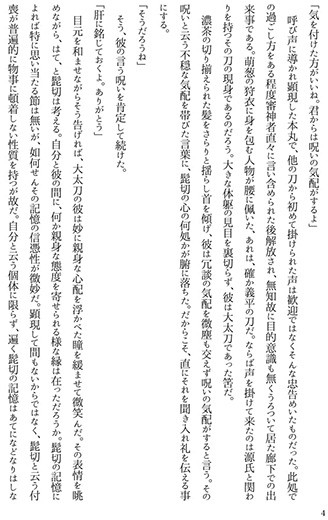 「気を付けた方がいいね。君からは呪いの気配がするよ」
　呼び声に導かれ顕現した本丸で、他の刀から初めて掛けられた声は歓迎ではなくそんな忠告めいたものだった。此処で
の過ごし方をある程度審神者直々に言い含められた後解放され、無知故に目的意識も無くうろついて居た廊下での出
来事である。萌葱の狩衣に身を包む人物が腰に佩いた、あれは、確か義平の刀だ。ならば声を掛けて来たのは源氏と関わ
りを持つその刀の現身であるのだろう。大きな体躯の見目を裏切らず、彼は大太刀であった筈だ。
　濃茶の切り揃えられた髪をさらりと揺らし首を傾げ、彼は冗談の気配を微塵も交えず呪いの気配がすると言う。その
呪いと云う不穏な気配を帯びた言葉に、髭切の心の何処かが腑に落ちた。だからこそ、直にそれを聞き入れ礼を伝える事
にする。
「そうだろうね」
　そう、彼の言う呪いを肯定して続けた。
「肝に銘じておくよ。ありがとう」
　目元を和ませながらそう告げれば、大太刀の彼は妙に親身な心配を浮かべた瞳を緩ませて微笑んだ。その表情を眺
めながら、はて、と髭切は考える。自分と彼の間に、何か親身な態度を寄せられる様な縁は在っただろうか。髭切の記憶に
よれば特に思い当たる節は無いが、如何せんその記憶の信憑性が微妙だ。顕現して間もないからではなく、髭切と云う付
喪が普遍的に物事に頓着しない性質を持つが故だ。自分と云う個体に限らず、遍く髭切の記憶はあてになどなりはしな
4